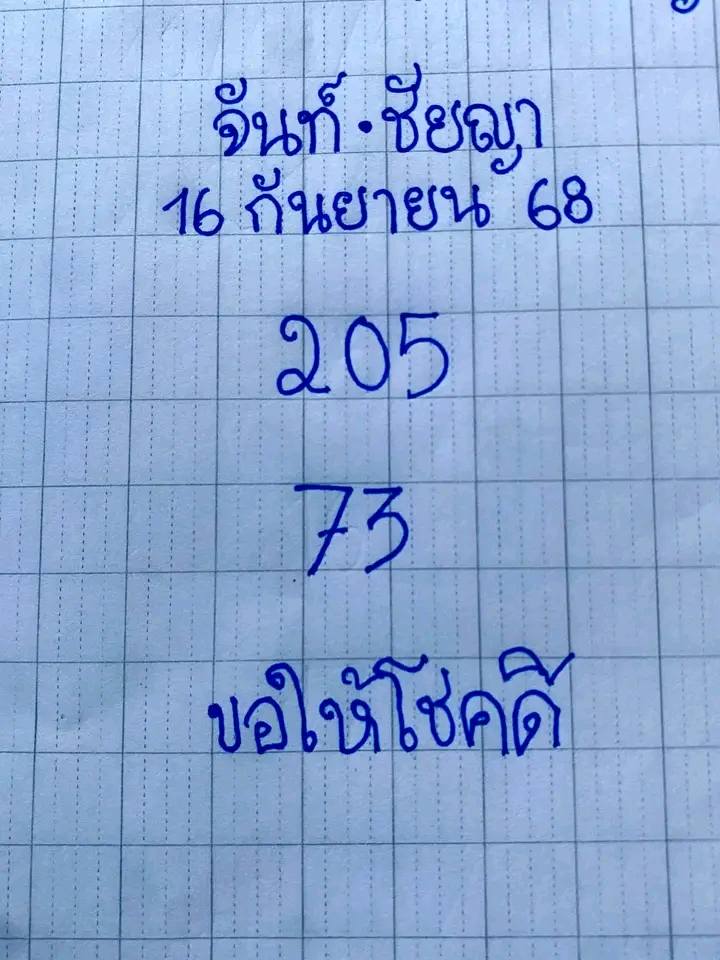 จันท์.ชัยญา
16 กันยายน 68
205
73
ขอให้โชคดี